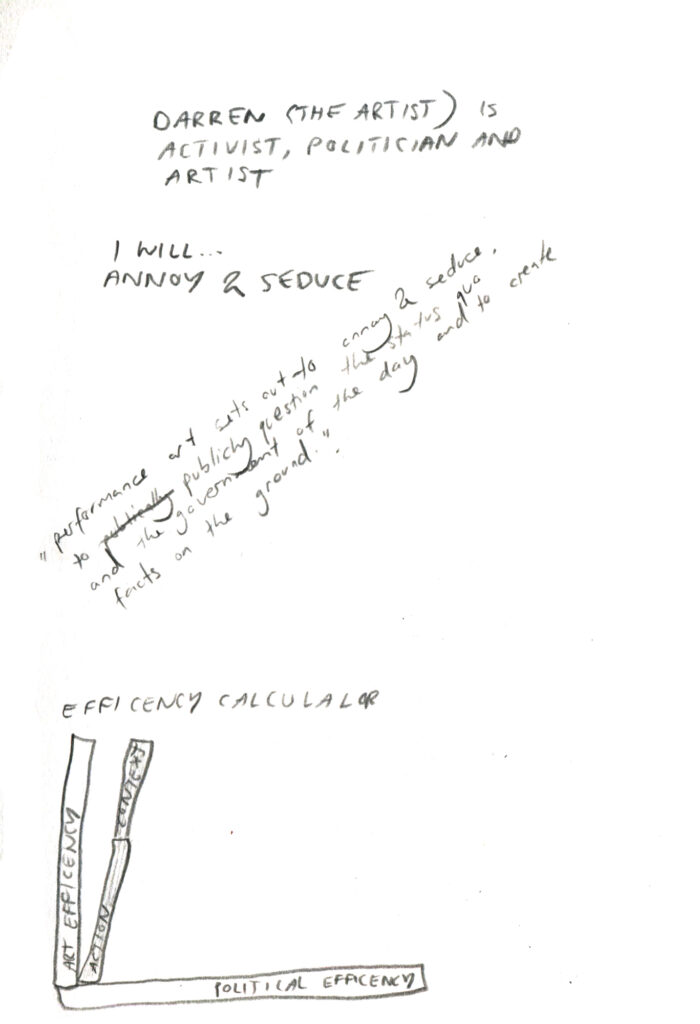 DARREN (THE ARTIST) IS
ACTIVIST, POLITICIAN AND
ARTIST
I WILL...
ANNOY & SEDUCE
"performance art sets out to annoy & seduce,
to publically publicly question the status quo
and the government of the day and to create
facts on the ground.".
EFFICENCY CALCULALOR
ART EFFICENCY
ACTION
CONTEXT
POLITICAL EFFICENCY